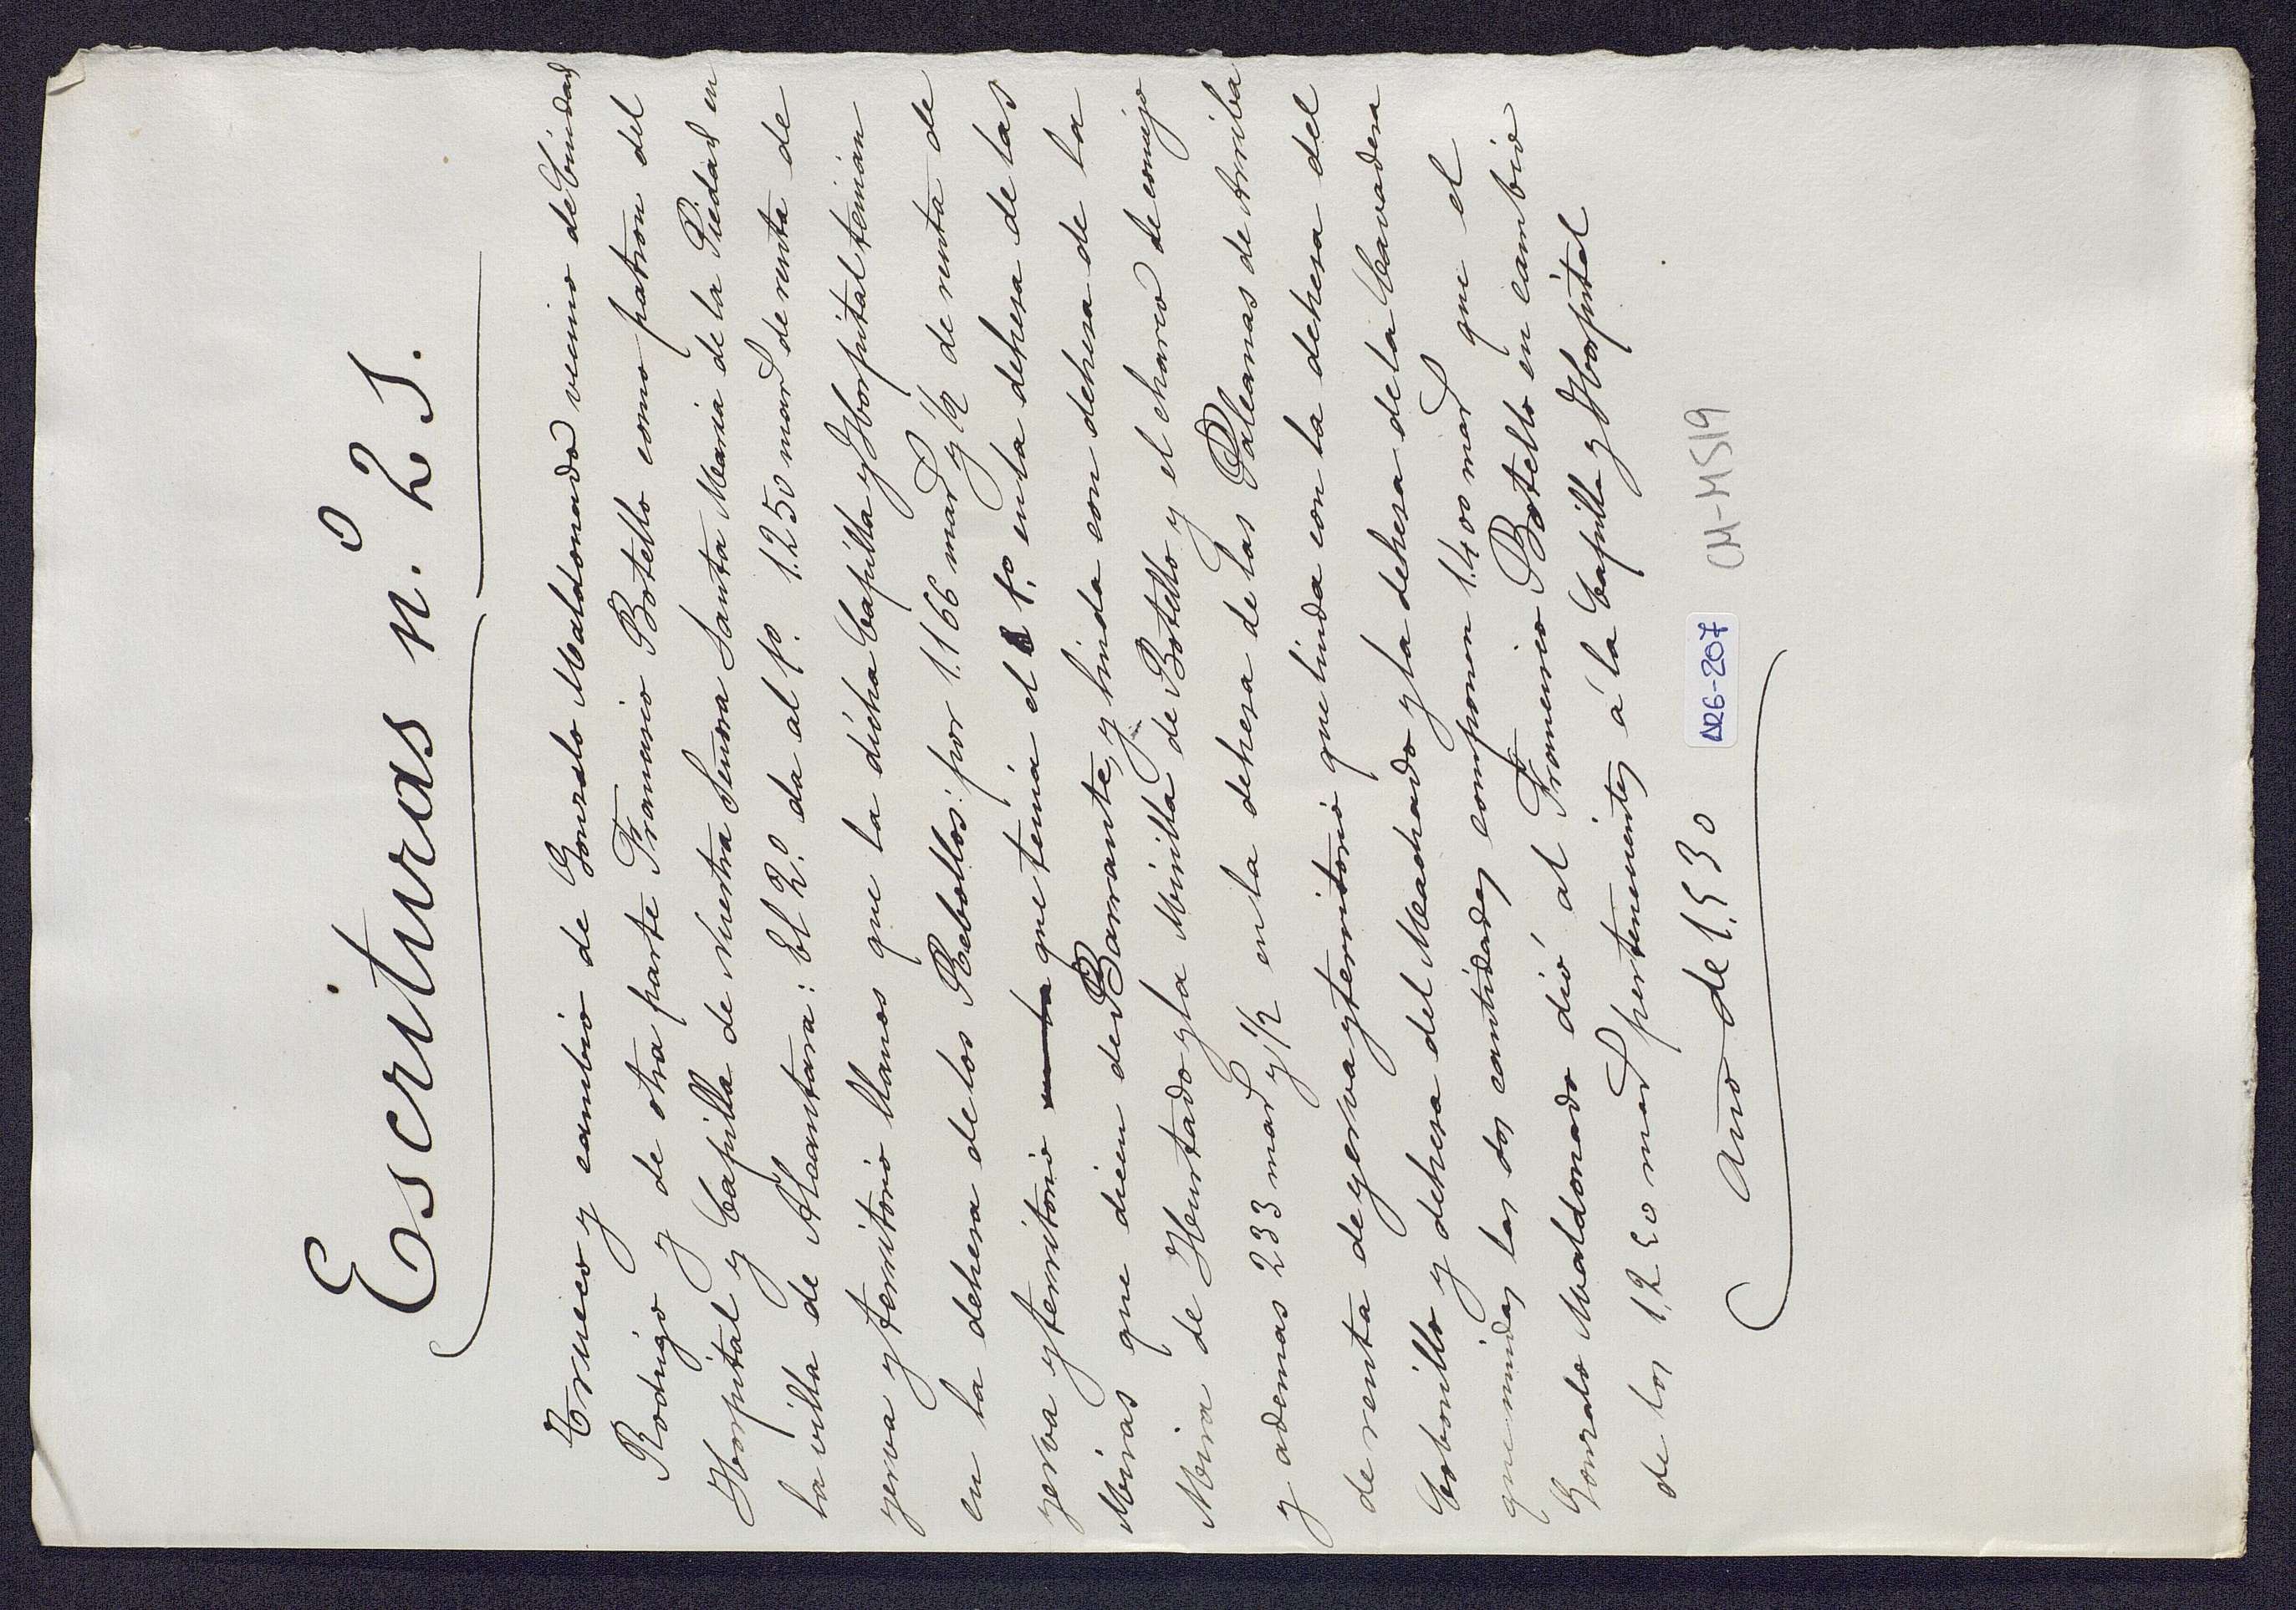 Escrituras n.º 21.
Trueco y cambio de Gonzalo Maldonado vecino de Ciudad
Rodrigo y de otra parte Francisco Botello como patron del
Hospital y Capilla de Nuestra Señora Santa Maria de la Piedad en
la villa de Alcantara: El 2.º da al 1.º 1.250 mard de renta de
yerva y territorio llanos que la dicha Capilla y Hospital tenian
en la dehesa de los Rebollos: por 1.166 mard y 1/2 de renta de
yerva y territorio que tenia el 1.º en la dehesa de las
Miras que dicen de Barrante, y linda con dehesa de la
Mira de Hurtado y la Mirilla de Botello y el charco de conejo
y ademas 233 mard y 1/2 en la dehesa de las Paleanas de Arriba
de renta de yerva y territorio que linda con la dehesa del
Cobonillo y dehesa del Machado y la dehesa de la Cavadera
que unidas las dos cantidades componen 1.400 mard que el
Gonzalo Maldonado dió al Francisco Botello en cambio
de los 1,250 mard pertenecientes á la Capilla y Hospital
año de 1,530
AR6-207
CM-M519